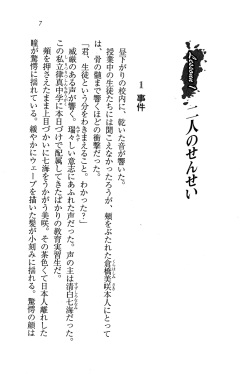 7
Lesson1
二人のせんせい
1 事件
昼下がりの校内に、乾いた音が響いた。
授業中の生徒たちには聞こえなかったろうが、頬をぶたれた倉橋美咲本人にとって
は、骨の髄まで響くほどの衝撃だった。
「君、生徒という分をわきまえること。わかった？」
威厳のある声が響く。瑞々しい意志にあふれた声だった。声の主は清白七海だった。
この私立律真中学に本日づけで配属してきたばかりの教育実習生だ。
頬を押さえたまま上目づかいに七海をうかがう美咲。その茶色くて日本人離れした
瞳が驚愕に揺れている。緩やかにウェーブを描いた髪が小刻みに揺れる。驚愕の顔は